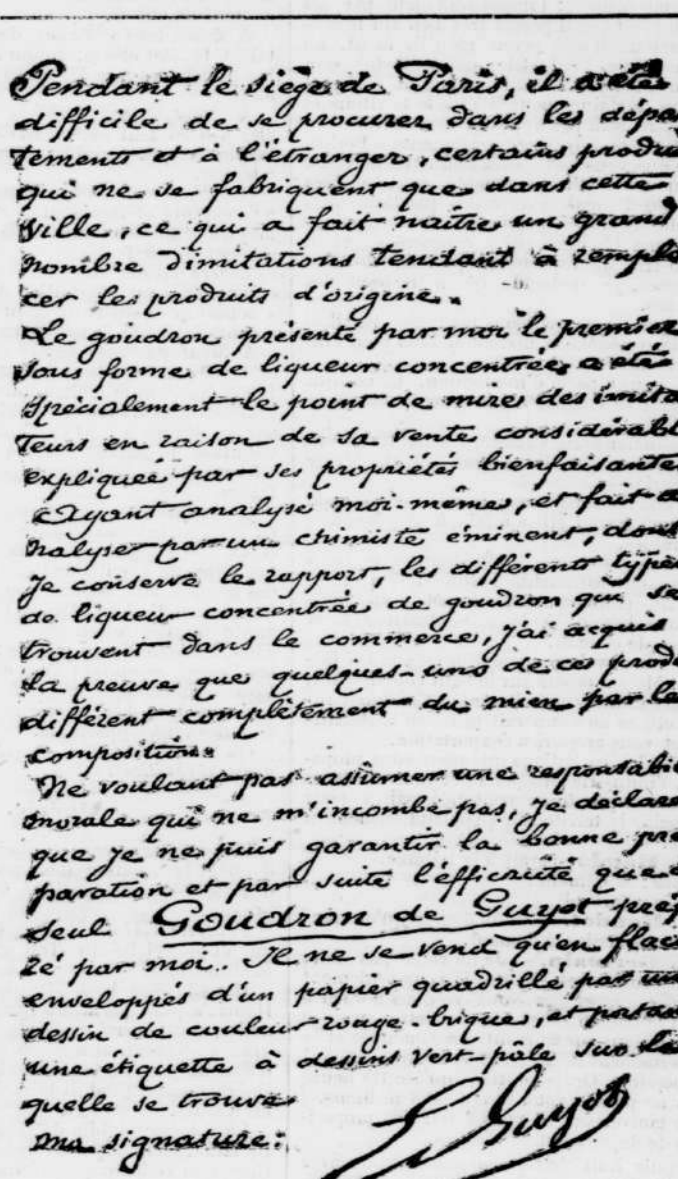 Pendant le siège de Paris, il a été
difficile de se procurer dans les dépa
tements et à l'étranger, certains produi
qui ne se fabriquent que dans cette
ville, ce qui a fait naître un grand
nombre d'imitations tendant à rempla
cer les produits d'origine.
Le goudron présenté par moi le premier
sous forme de liqueur concentrée, a été
spécialement le point de mire des imita
teurs en raison de sa vente considérabl
expliquée par ses propriétés bienfaisante
Ayant analysé moi-même, et fait a
nalyser par un chimiste éminent, dont
je conserve le rapport, les différents type
de liqueur concentrée de goudron qui se
trouvent dans le commerce, j'ai acquis
la preuve que quelques-uns de ces produ
différent complètement du mien par la
composition.
Ne voulant pas assumer une responsabil
morale qui ne m'incombe pas, je déclare
que je ne puis garantir la bonne pré
paration et par suite l'éfficacité que d
seul Goudron de Guyot prép
ré par moi. Il ne se vend qu'en flac
enveloppés d'un papier quadrillé par un
dessin de couleur rouge-brique, et porta
une étiquette à dessins vert-pâle sur la
quelle se trouve
ma signature:
E Guyot